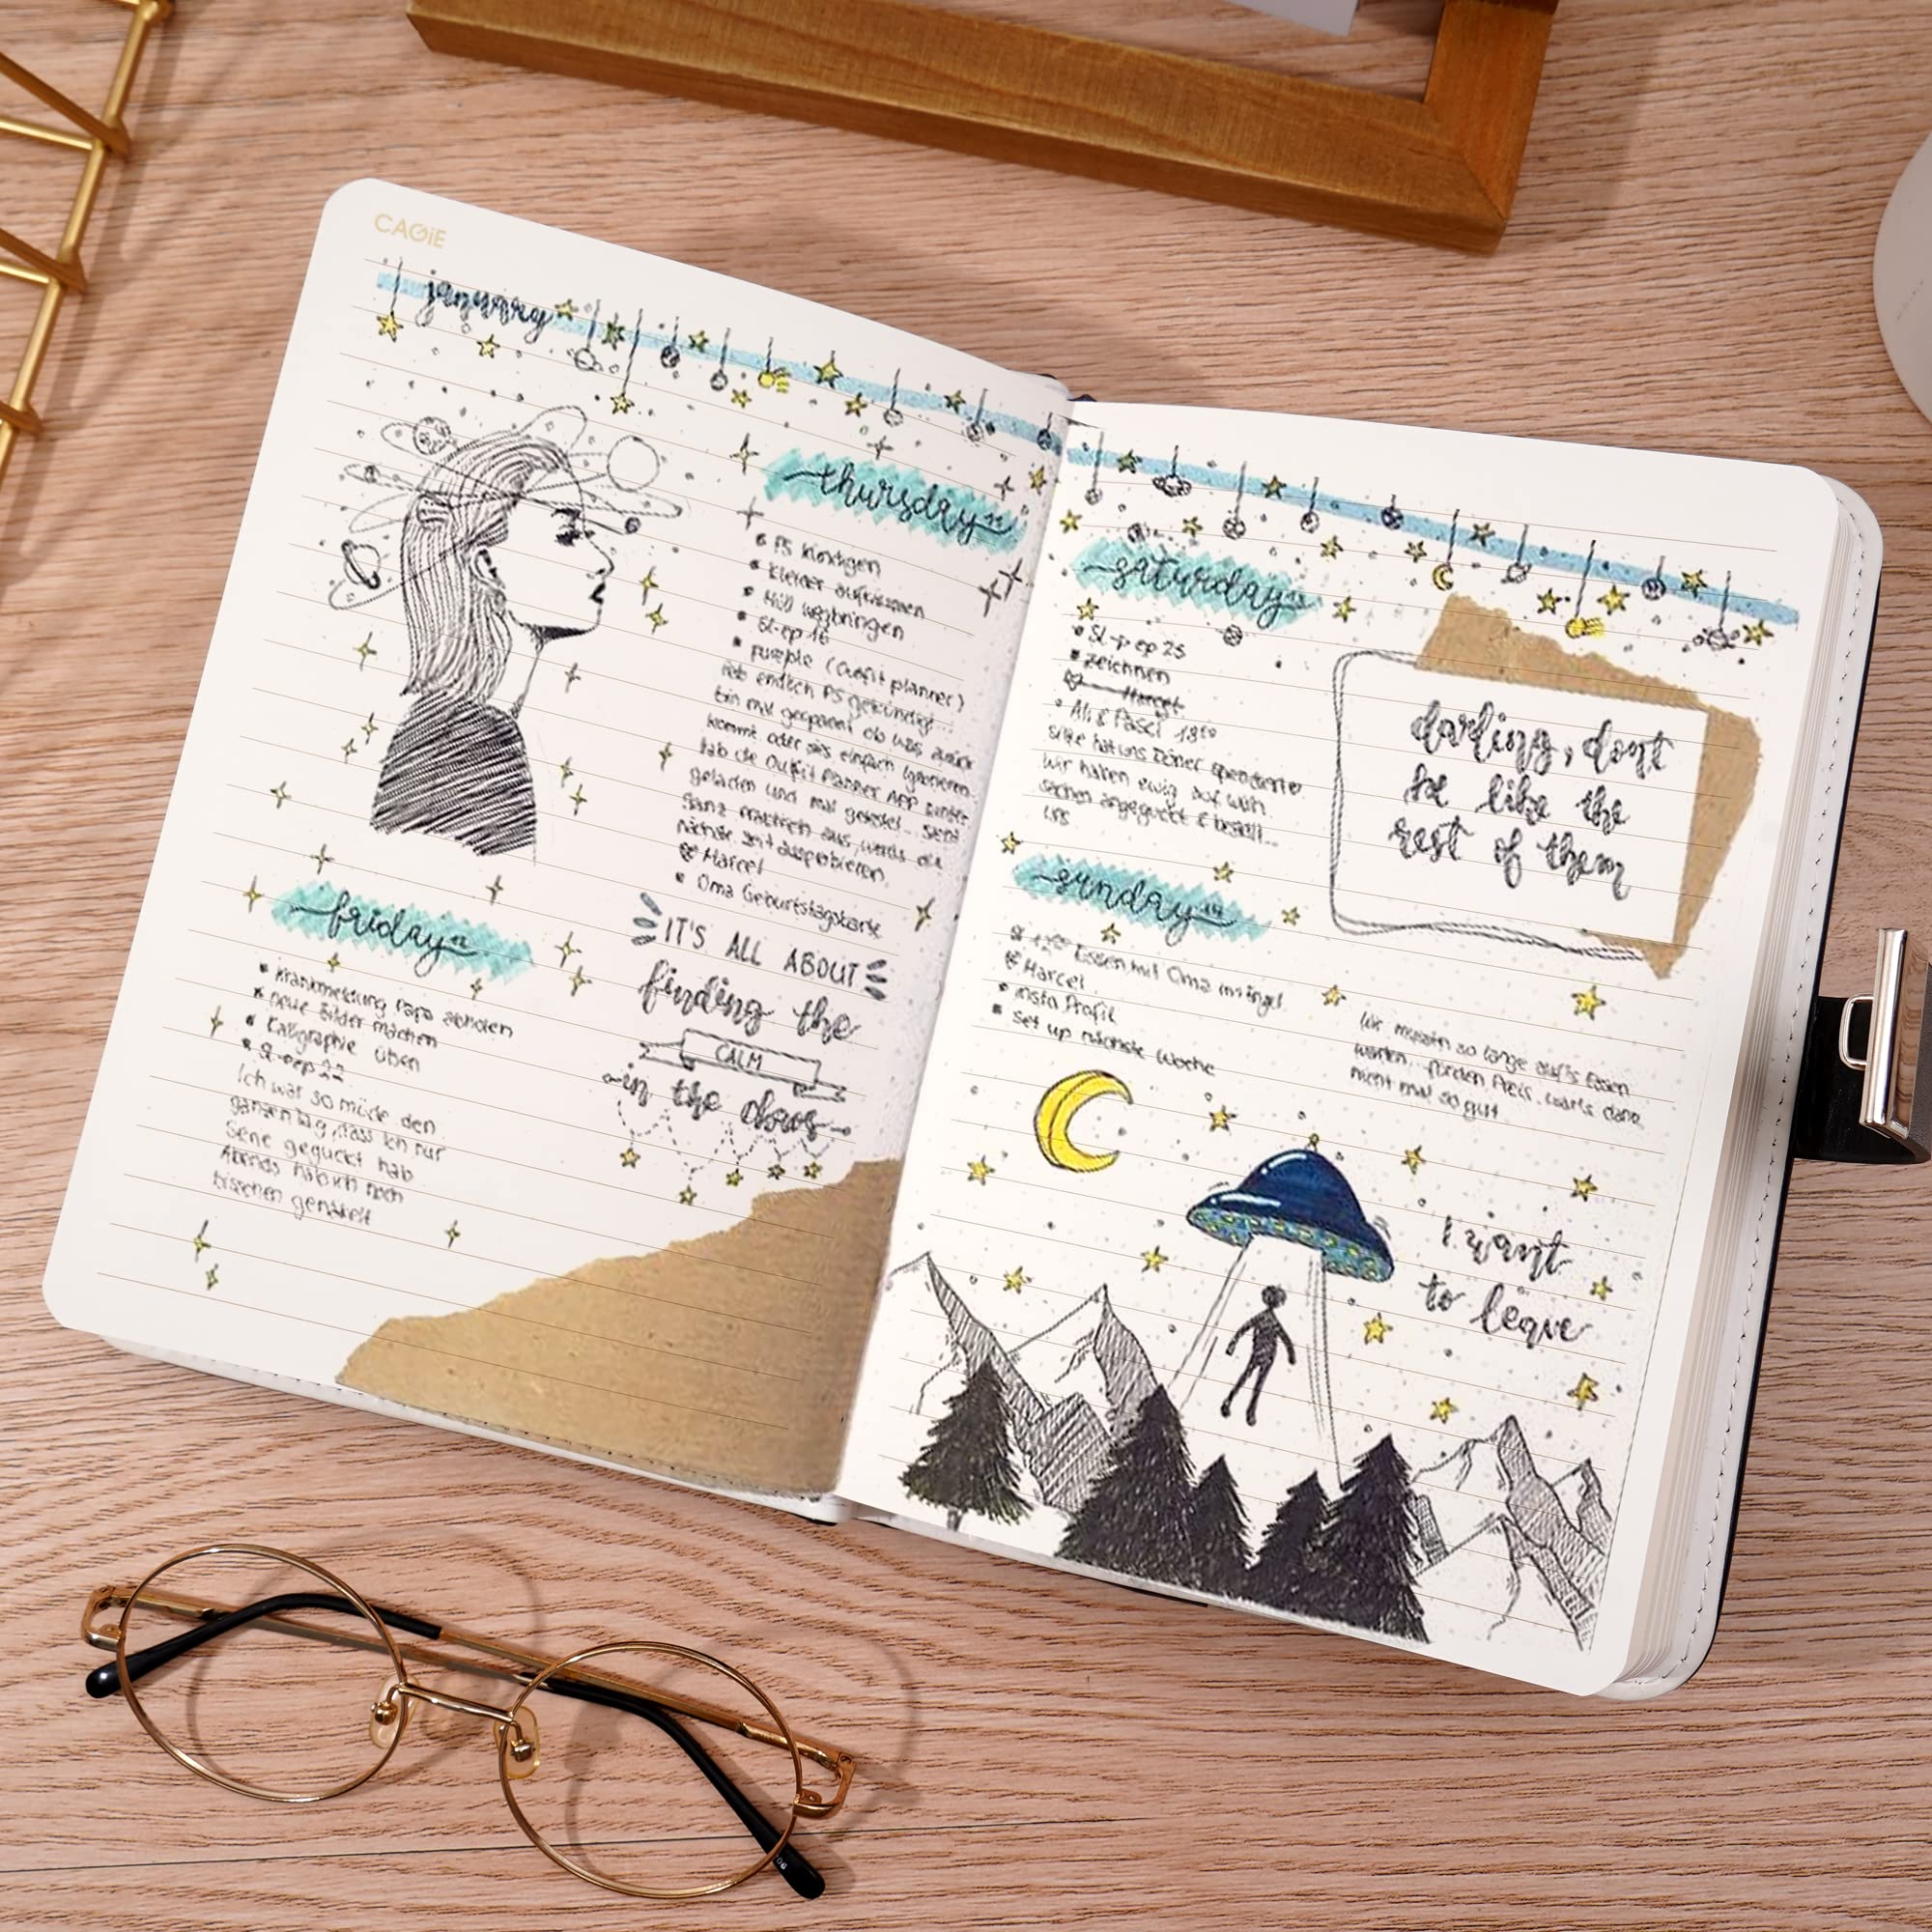 CAGiE
january
thursday 11
PS kündigen
kleider aufräumen
Müll wegbringen
SL-ep 16
purple (Outfit planner)
Hab endlich PS gekündigt...
bin mal gespannt ob was zurück
kommt oder sie's einfach ignorieren.
hab die Outfit Planner APP runter
geladen und mal getestet... sieht
ganz praktisch aus, werds die
nächste Zeit ausprobieren
Marcel
Oma Geburtstagskarte
IT'S ALL ABOUT
finding the
CALM
in the chaos
friday 12
Krankmeldung Papa abholen
neue Bilder machen
Kalligraphie üben
SL-ep 22
Ich war so müde den
ganzen tag, dass ich nur
Serie geguckt hab
Abends hab ich noch
bisschen gemalt
saturday 13
SL-p ep 25
zeichnen
Ali & Pasci 18:00
hat uns Döner spendiert
wir haben ewig auf wish
sachen angeguckt & bestellt...
darling, dont
be like the
rest of them
sunday 14
Essen mit Oma
Marcel
insta Profil
Set up nächste Woche
Wir mussten so lange aufs Essen
warten, für den Preis wars dann
nicht mal so gut
I want
to leave